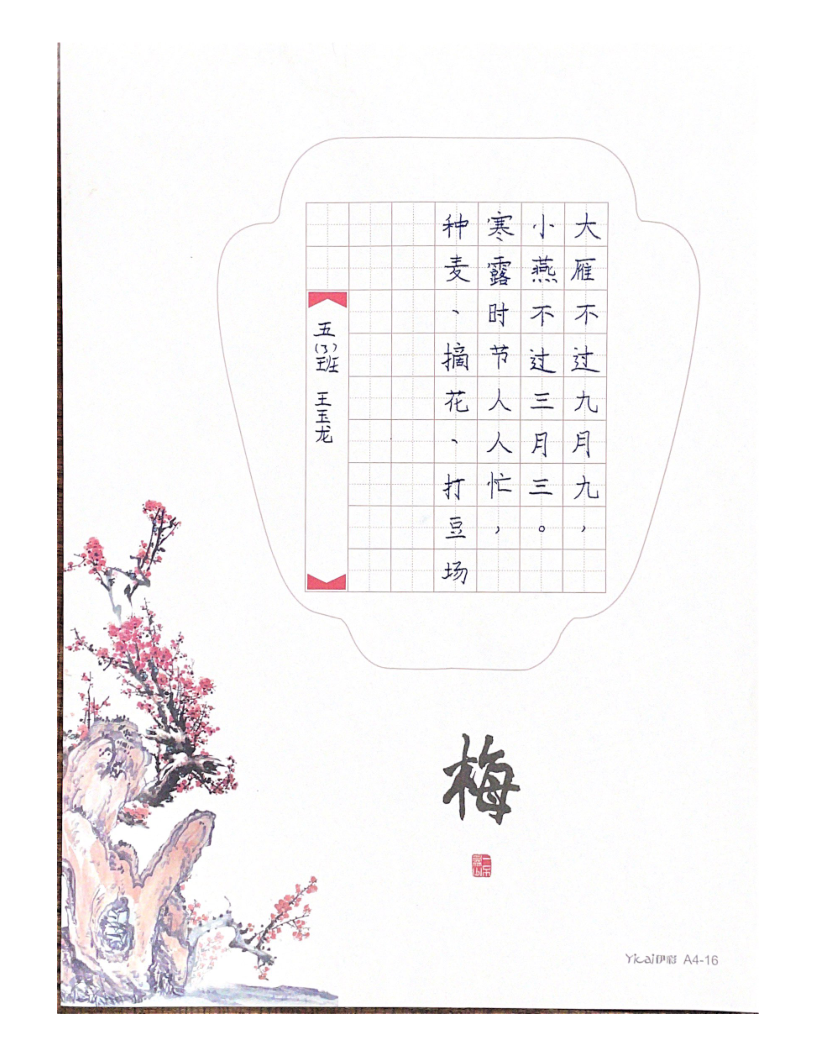 大雁不过九月九，
小燕不过三月三。
寒露时节人人忙，
种麦、摘花、打豆场
五(3)班 王玉龙
梅
Yicai伊彩 A4-16